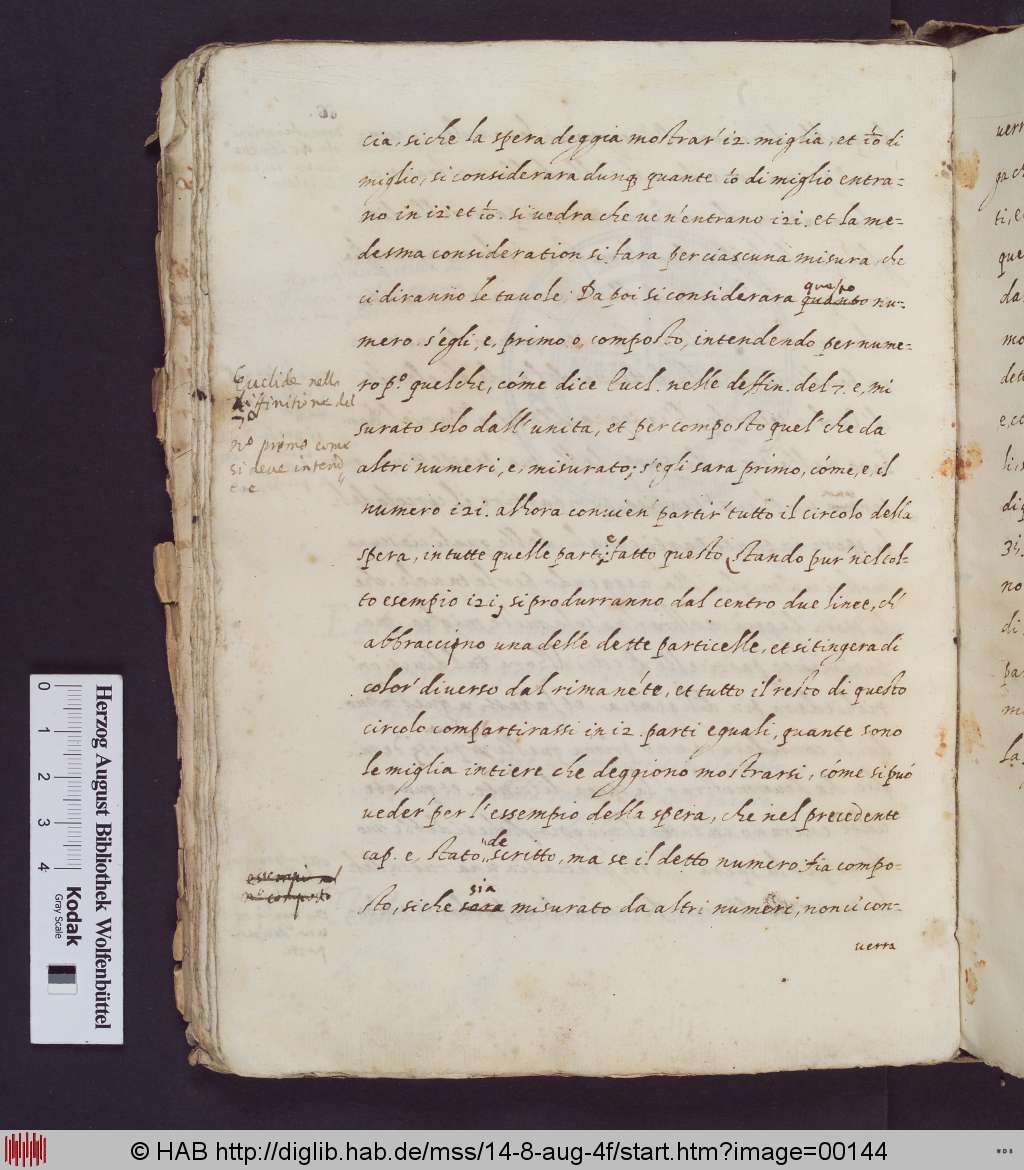 cia, siche la spera deggia mostrar' 12. miglia, et 1/10 di
miglio, si considerara dunq quante 1/10 di miglio entra=
no in 12 et 1/10. si vedra che ve n'entrano 121. et la me=
desma consideration si fara per ciascuna misura, che
ci diranno le tavole; Da poi si considerara questo nu=
mero s'egli, e, primo o, composto, intendendo per nume=
ro p.o quelche, cóme dice Eucl. nelle deffin. del 7. e, mi
surato solo dall' unita, et per composto quel' che da
altri numeri, e, misurato; s'egli sara primo, cóme, e, il
numero 121. alhora convien' partir' tutto il circolo della
spera, in tutte quelle parti: e fatto questo, stando pur' nel col=
to esempio 121, si produrranno dal centro due linee, ch'
abbraccino una delle dette particelle, et si tingera di
color' diverso dal rimanéte, et tutto il resto di questo
circolo compartirassi in 12. parti equali, quante sono
le miglia intiere che deggiono mostrarsi, cóme si può
veder' per l'essempio della spera, che nel precedente
cap. e, stato descritto, ma se il detto numero fia compo=
sto, siche sia misurato da altri numeri, non ci con=
verra
Euclide nella
diffinitione del
7o
no primo come
si deve intend
ere
essempi nel
no composto
Herzog August Bibliothek Wolfenbüttel
Kodak
Gray Scale
0 1 2 3 4
© HAB http://diglib.hab.de/mss/14-8-aug-4f/start.htm?image=00144